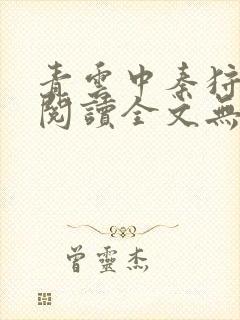 青雲中秦狩
閱讀全文無
曾靈杰